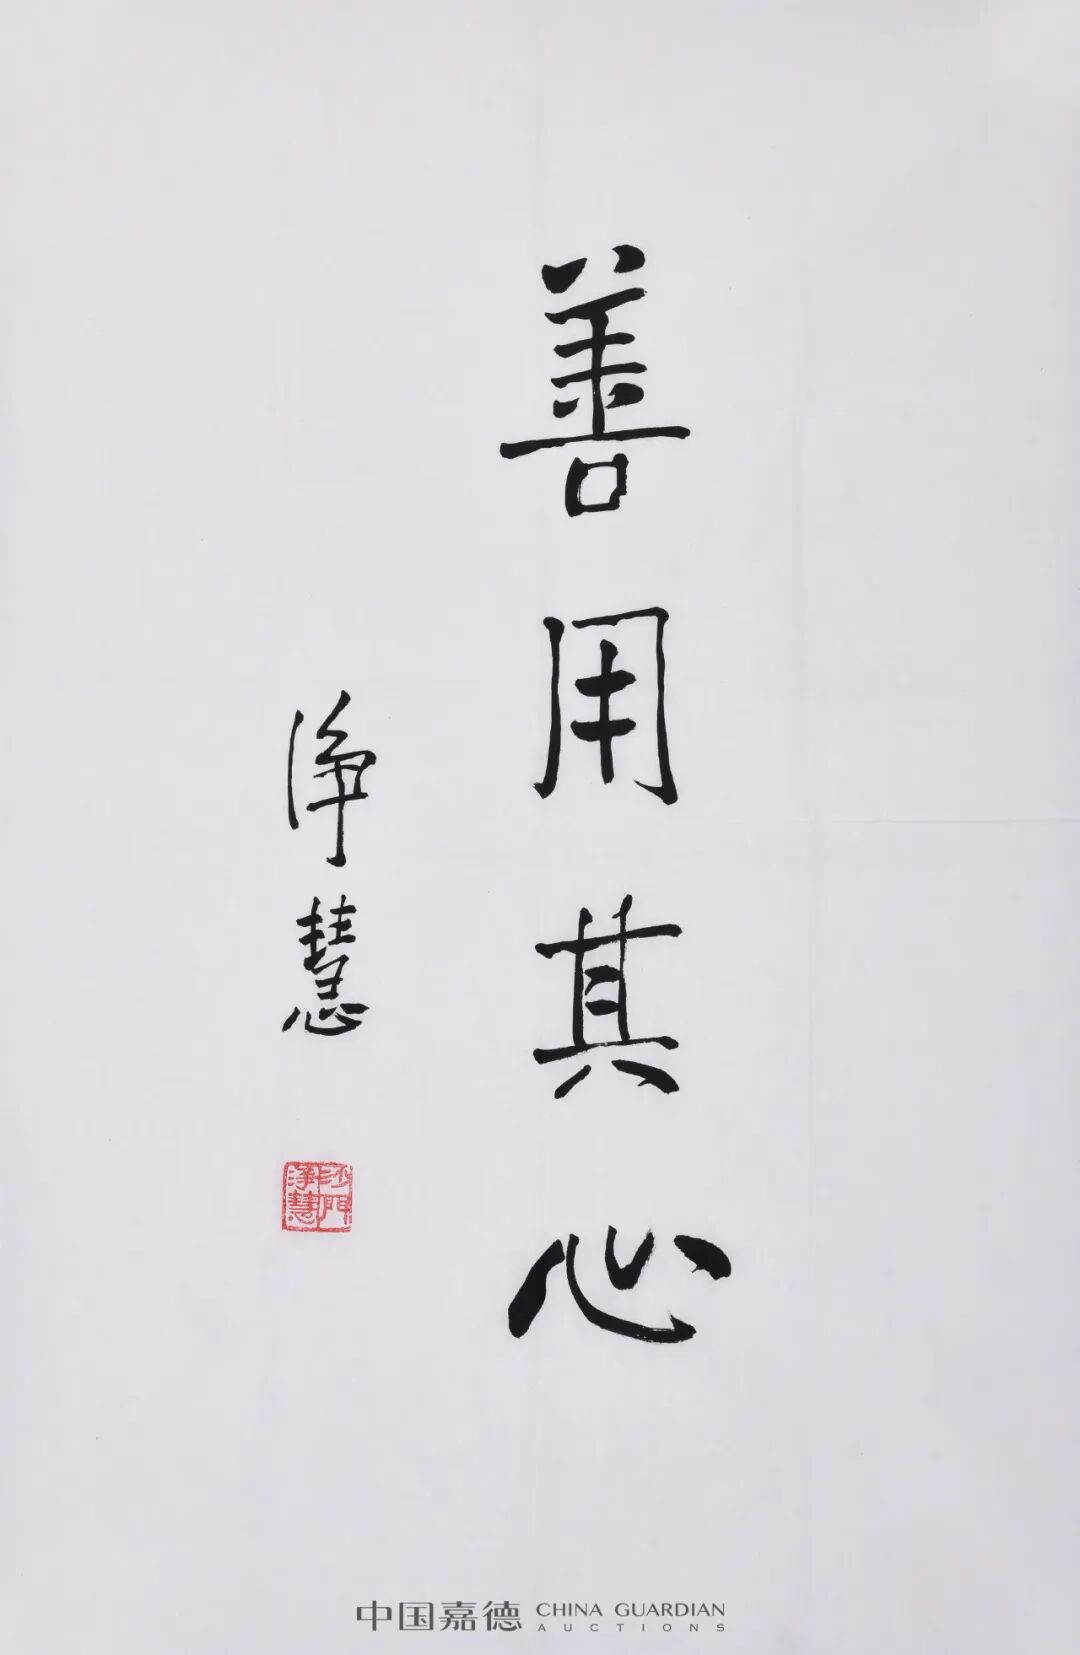 善用其心
净慧
沙門
净慧
中国嘉德 CHINA GUARDIAN
AUCTIONS